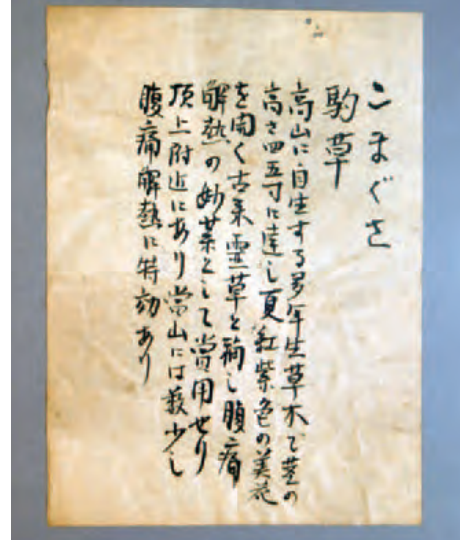 こまぐさ
駒草
高山に自生する多年生草木で茎の
高さ四五寸に達し夏紅紫色の美花
を開く古来霊草と称し腹痛
解熱の妙薬として賞用せり
頂上附近にあり当山には数少し
腹痛解熱に特効あり